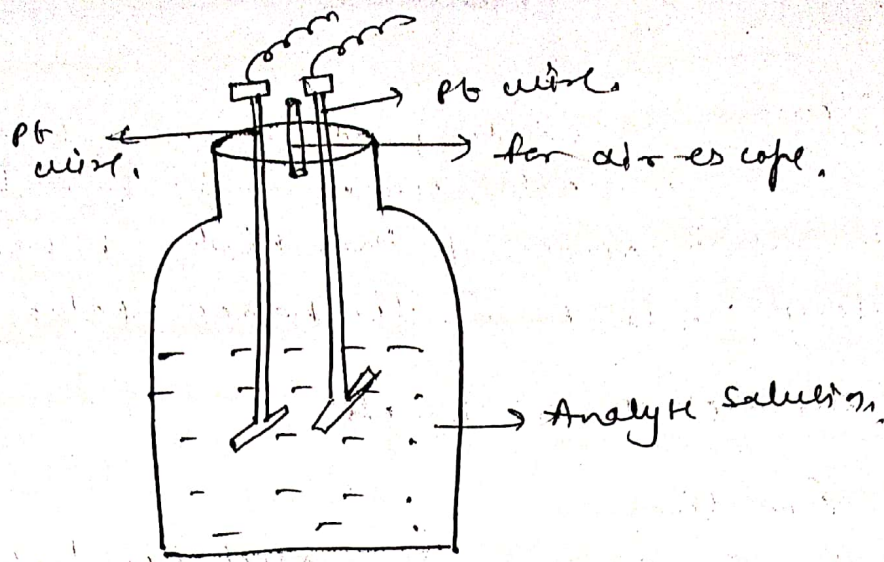 Pt wire.
Pt
wire.
for air escape.
Analyte Solution.